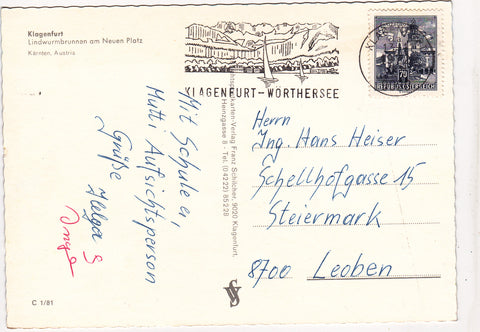 Klagenfurt
Lindwurmbrunnen am Neuen Platz
Kärnten, Austria
KLAGENFURT-WÖRTHERSEE
KL
70
REPUBLIK ÖSTERREICH
Mit Schule er,
Mutti Aufsichtsperson
Grüße Helga S
Franz Schilcher, 9020 Klagenfurt,
Heinzgasse 8 - Tel. (04222) 85228
Herrn
Ing. Hans Heiser
Schellhofgasse 15
Steiermark
8700 Leoben
C 1/81